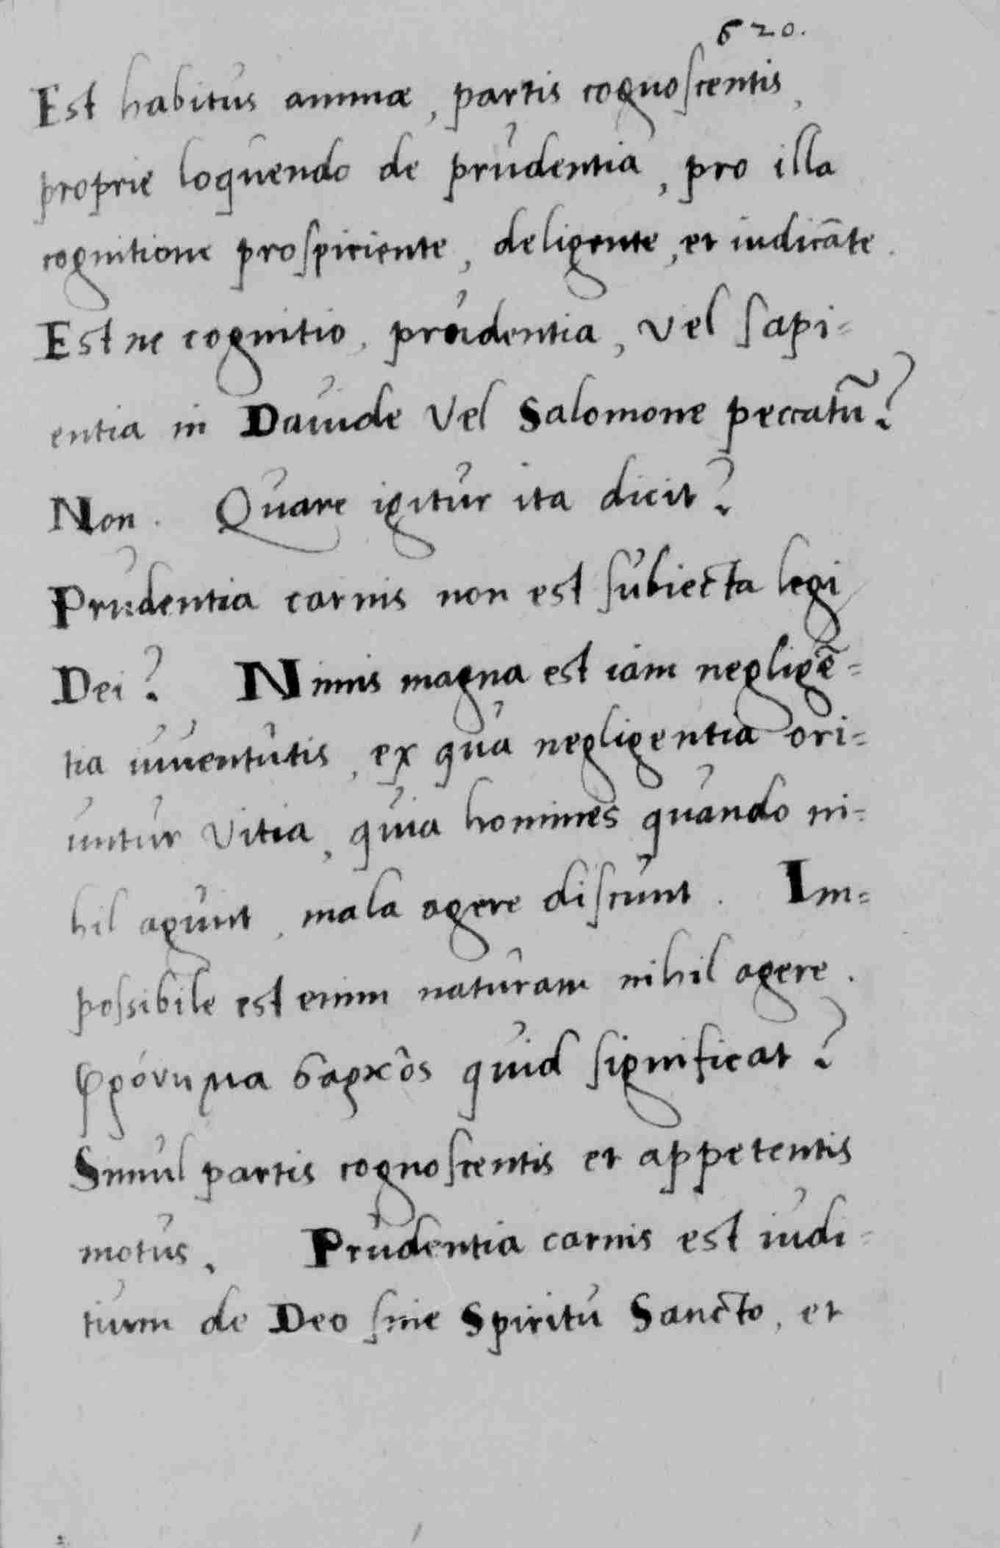 620.
Est habitus animæ, partis cognoscentis,
proprie loquendo de prudentia, pro illa
cognitione prospiciente, deligente, et iudicāte.
Est ne cognitio, prudentia, vel sapi=
entia in Dauide vel Salomone peccatū?
Non. Quare igitur ita dicit?
Prudentia carnis non est subiecta legi
Dei? Nimis magna est iam negligē=
tia iuuentutis, ex qua negligentia ori=
untur vitia, quia homines quando ni=
hil agunt, mala agere discunt. Im=
possibile est enim naturam nihil agere.
φρόνημα σαρκὸς quid significat?
Simul partis cognoscentis et appetentis
motus. Prudentia carnis est iudi=
tium de Deo sine Spiritu Sancto, et